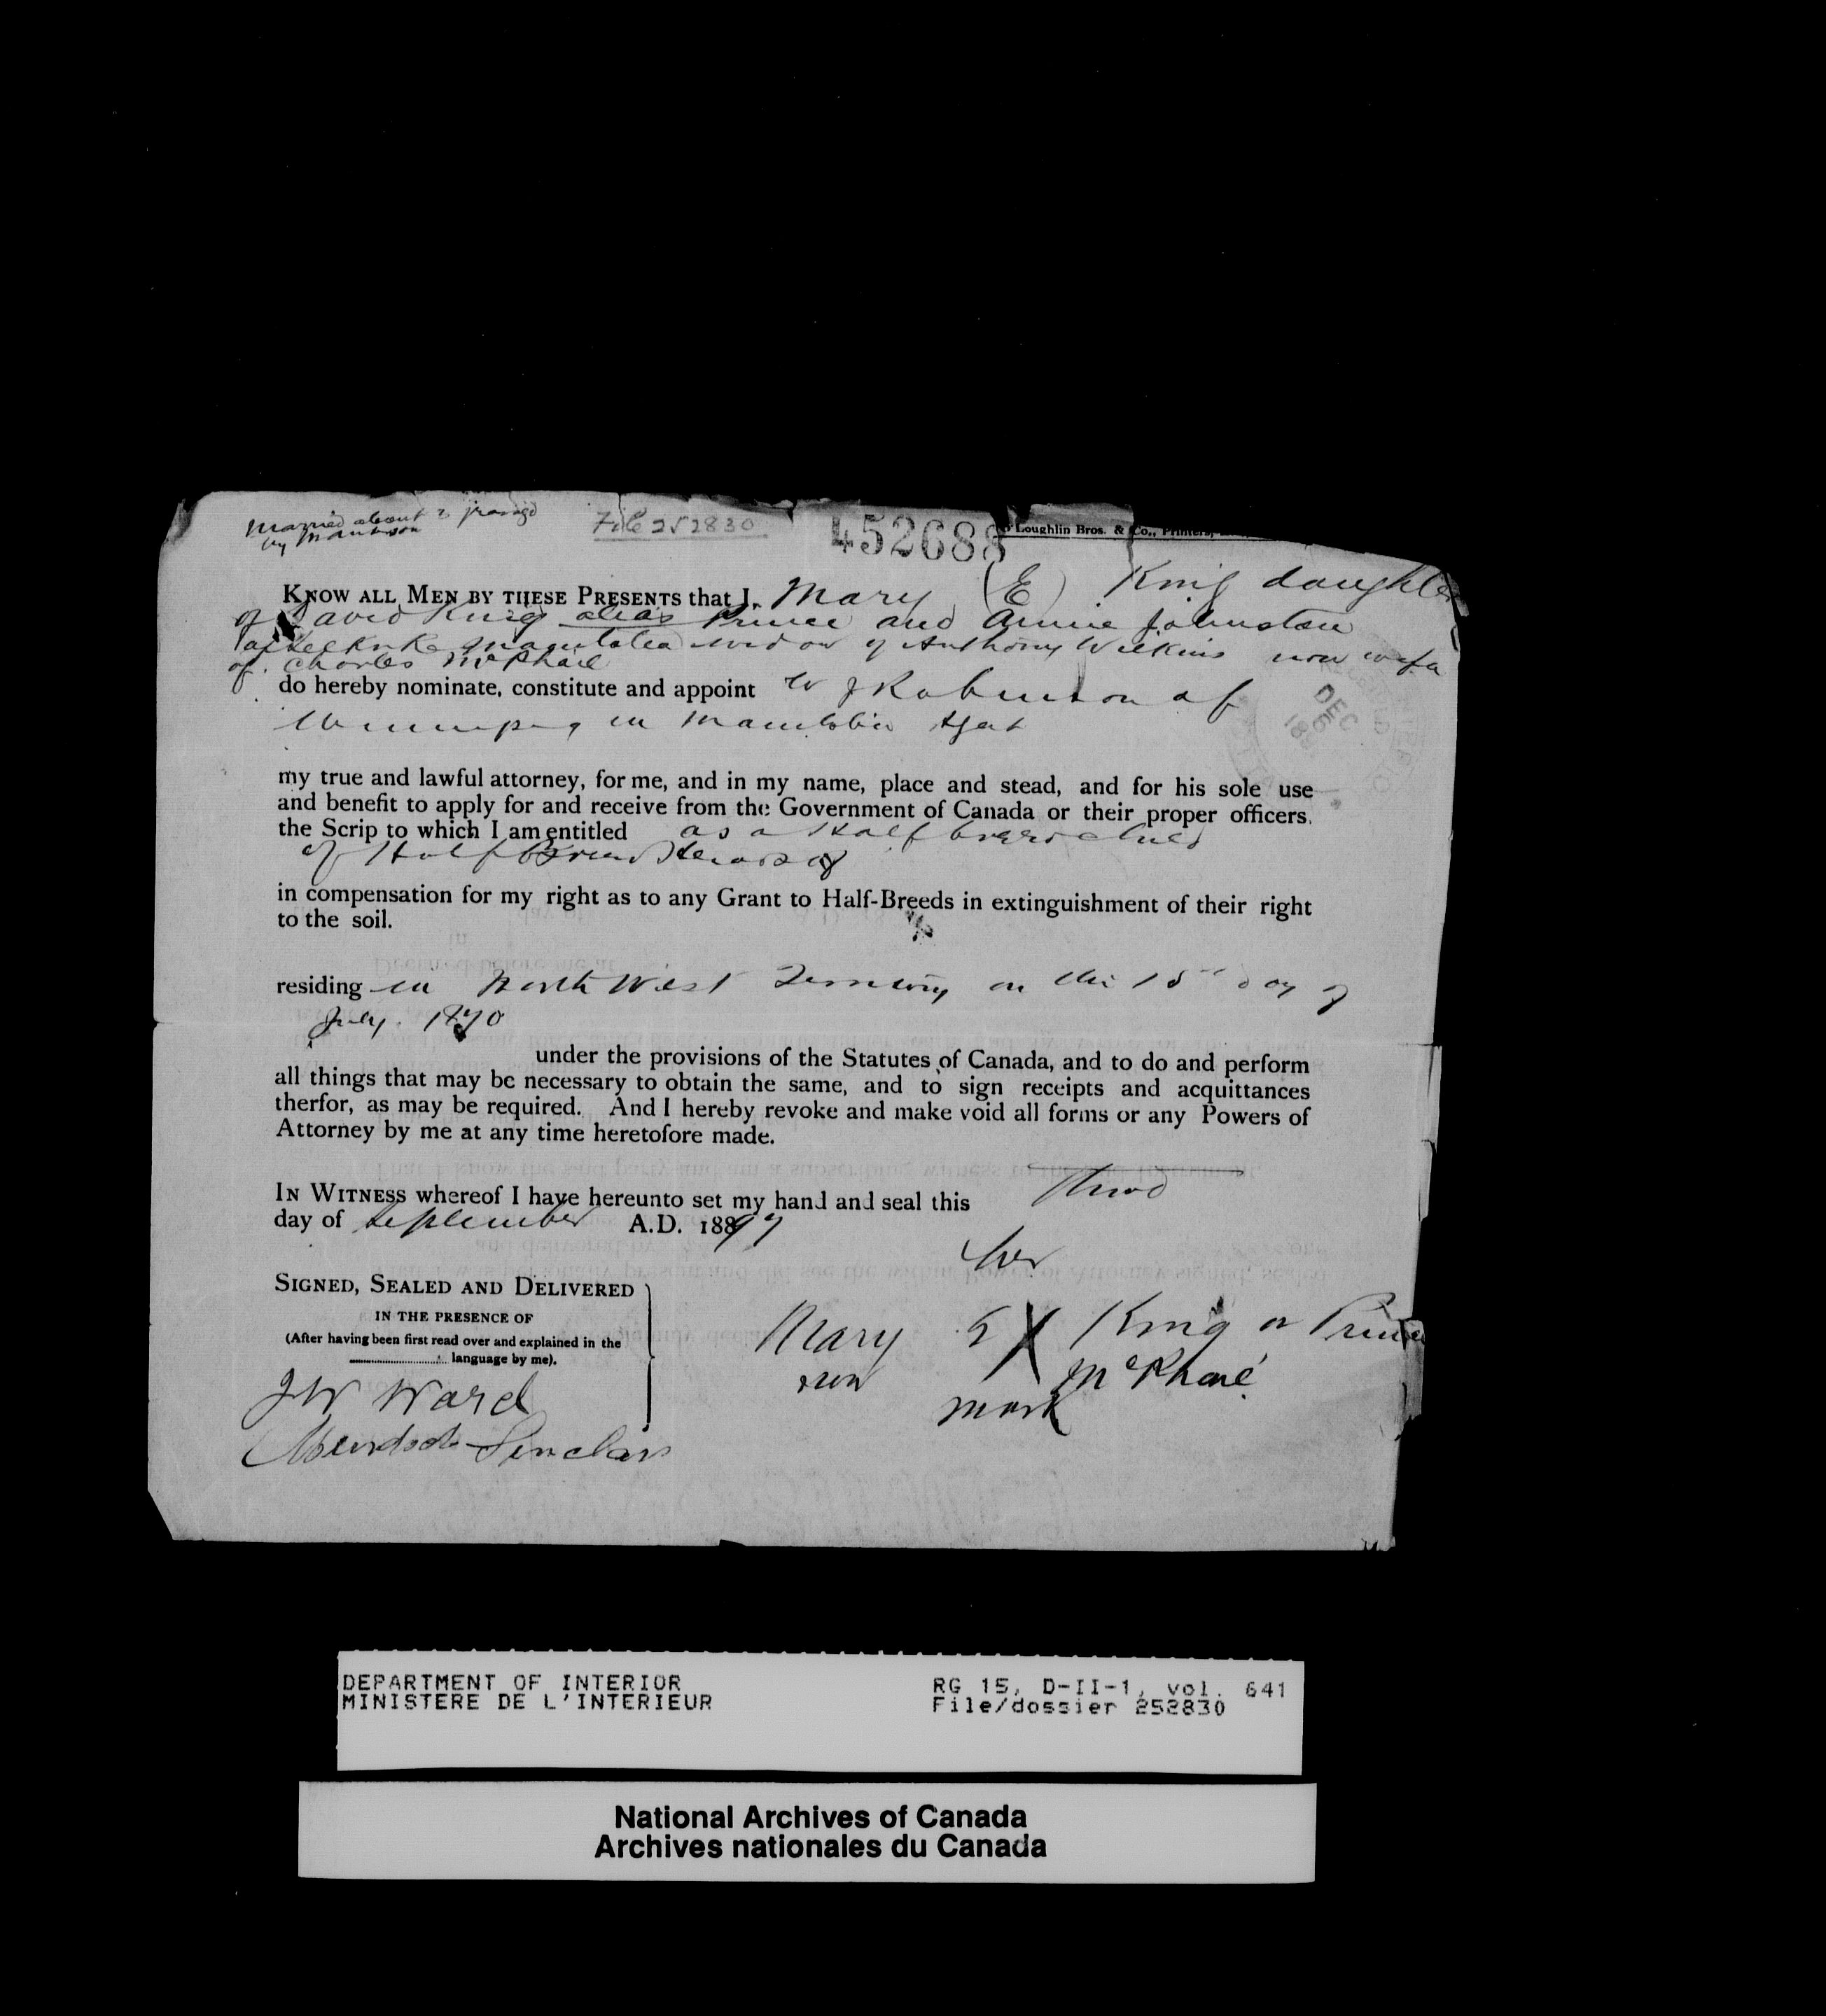 Married about 2 years ago
by
File 252830
452688
O'Loughlin Bros. & Co., Printers,
KNOW ALL MEN BY THESE PRESENTS that I, Mary (E) King daughter
of David King alias Prince and Annie Johnston
of Manitoba widow of Anthony Wilkins now wife
of Charles McPhail
do hereby nominate, constitute and appoint W J Robinson of
Winnipeg in Manitoba Agent
DEC
6
my true and lawful attorney, for me, and in my name, place and stead, and for his sole use
and benefit to apply for and receive from the Government of Canada or their proper officers.
the Scrip to which I am entitled as a Half breed child
of Half Breed Heads of
in compensation for my right as to any Grant to Half-Breeds in extinguishment of their right
to the soil.
residing in North West Territory on the 15th day of
July. 1870
under the provisions of the Statutes of Canada, and to do and perform
all things that may be necessary to obtain the same, and to sign receipts and acquittances
therfor, as may be required. And I hereby revoke and make void all forms or any Powers of
Attorney by me at any time heretofore made.
IN WITNESS whereof I have hereunto set my hand and seal this Third
day of September A.D. 1897
her
SIGNED, SEALED AND DELIVERED
IN THE PRESENCE OF
(After having been first read over and explained in the
language by me).
Mary E X King or Prince
now McPhail
mark
J W Ward
Murdoch Sinclair
DEPARTMENT OF INTERIOR RG 15, D-II-1, vol. 641
MINISTERE DE L'INTERIEUR File/dossier 252830
National Archives of Canada
Archives nationales du Canada